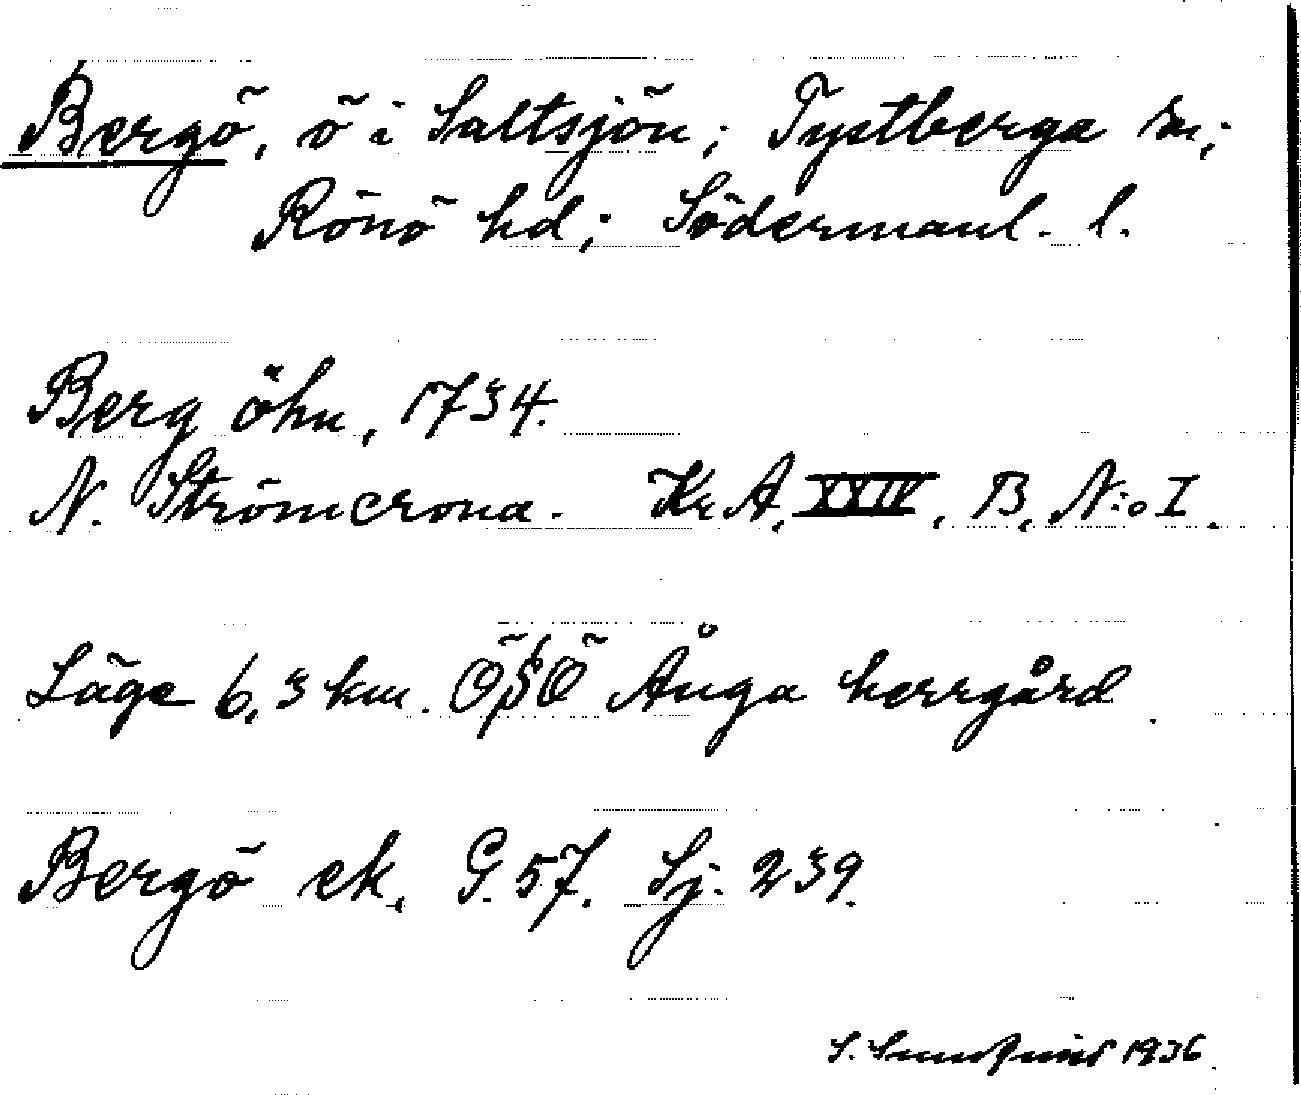 Bergö, ö i Saltsjön; Tystberga sn;
Rönö hd; Södermanl. l.
Berg öhn, 1734.
N. Strömcrona. Kr A, XXIV, B, N:o I.
Läge 6,3 km. ÖSÖ Ånga herrgård.
Bergö ek. G. 57. Sj. 239.
S. 1936